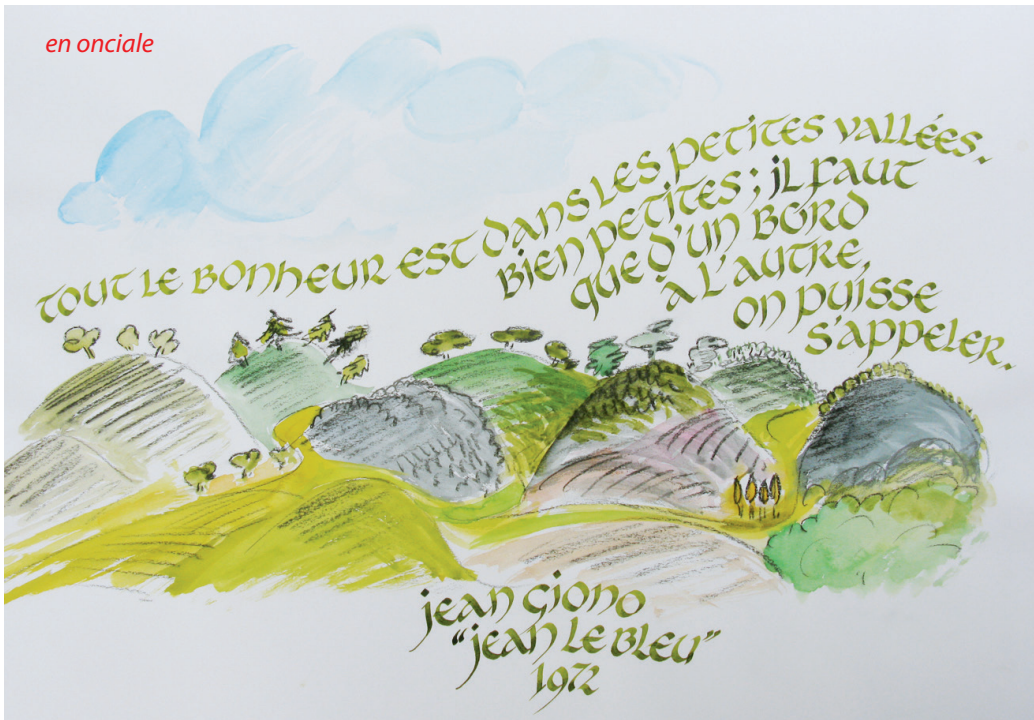 en onciale
tout le bonheur est dans les petites vallées.
bien petites ; il faut
que d'un bord
à l'autre,
on puisse
s'appeler.
jean giono
"jean le bleu"
1972